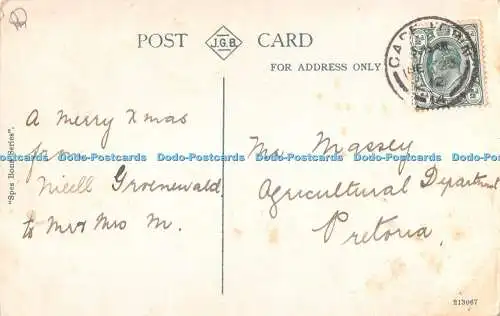 POST J.G.B. CARD
FOR ADDRESS ONLY
CAPE TOWN
A Merry Xmas
from
Groenewald
to Mr & Mrs M.
Mr. Massey
Agricultural Department
Pretoria.
"Spes Bona Series".
213067
Dodo-Postcards Dodo-Postcards Dodo-Postcards Dodo-Postcards Dodo-Postcards